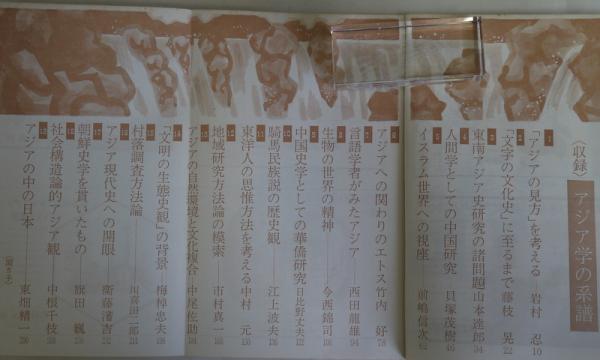 アジア学の系譜
〈収録〉
1 「アジアの見方」を考える——岩村 忍 10
2 「文字の文化史」に至るまで——藤枝 晃 22
3 東南アジア史研究の諸問題——山本達郎 34
4 人間学としての中国研究——貝塚茂樹
5 イスラム世界への視座——前嶋信次
アジアへの関わりのエトス——竹内 好 78
7 言語学者がみたアジア——西田龍雄 94
生物の世界の精神——今西錦司
中国史学としての華僑研究——日比野丈夫
騎馬民族説の歴史観——江上波夫
11 東洋人の思惟方法を考える——中村 元
12 地域研究方法論の模索——市村真一
アジアの自然環境と文化複合——中尾佐助
14 「文明の生態史観」の背景——梅棹忠夫
村落調査方法論——川喜田二郎
アジア現代史への開眼——衛藤瀋吉
朝鮮史学を貫いたもの——旗田 巍
社会構造論的アジア観——中根千枝
アジアの中の日本——東畑精一
〈聞き手〉